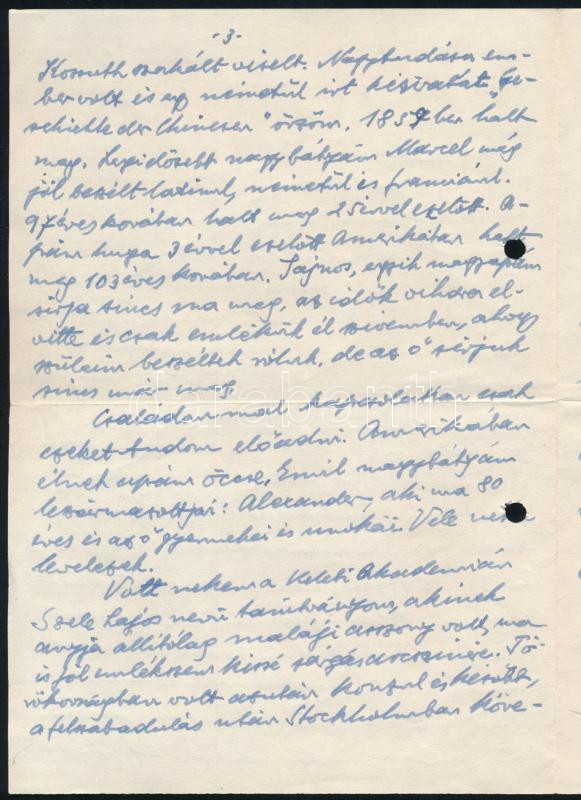 -3-
Kossuth szakált viselt. Nagytudású em-
ber volt és egy németül irt kéziratát "Ge-
schichte der Chinesen" őrzöm. 1857 ben halt
meg. Legidősebb nagybátyám Marcel még
jól beszélt latinul, németül és franciául.
97 éves korában halt meg 25 évvel ezelőtt. A-
pám huga 3 évvel ezelőtt Amerikában halt
meg 103 éves korában. Sajnos, egyik nagyapám
sirja sincs ma meg, az idők vihara el-
vitte és csak emlékük él szivemben, ahogy
szüleim beszéltek róluk, de az ő sirjuk
sincs már meg.
Családommal kapcsolatban csak
ezeket tudom előadni. Amerikában
élnek apám öccse, Emil nagybátyám
leszármazottjai: Alexander, aki ma 80
éves és az ő gyermekei és unokái. Vele
levelezek.
Volt nekem a Keleti Akadémián
Szele Lajos nevü tanitványom, akinek
anyja állitólag maláji asszony volt, ma
is jól emlékszem kissé sárgás arcszinére. Tö-
rökországban volt azután konzul és később,
a felszabadulás után Stockholmban köve-
darabanth.com